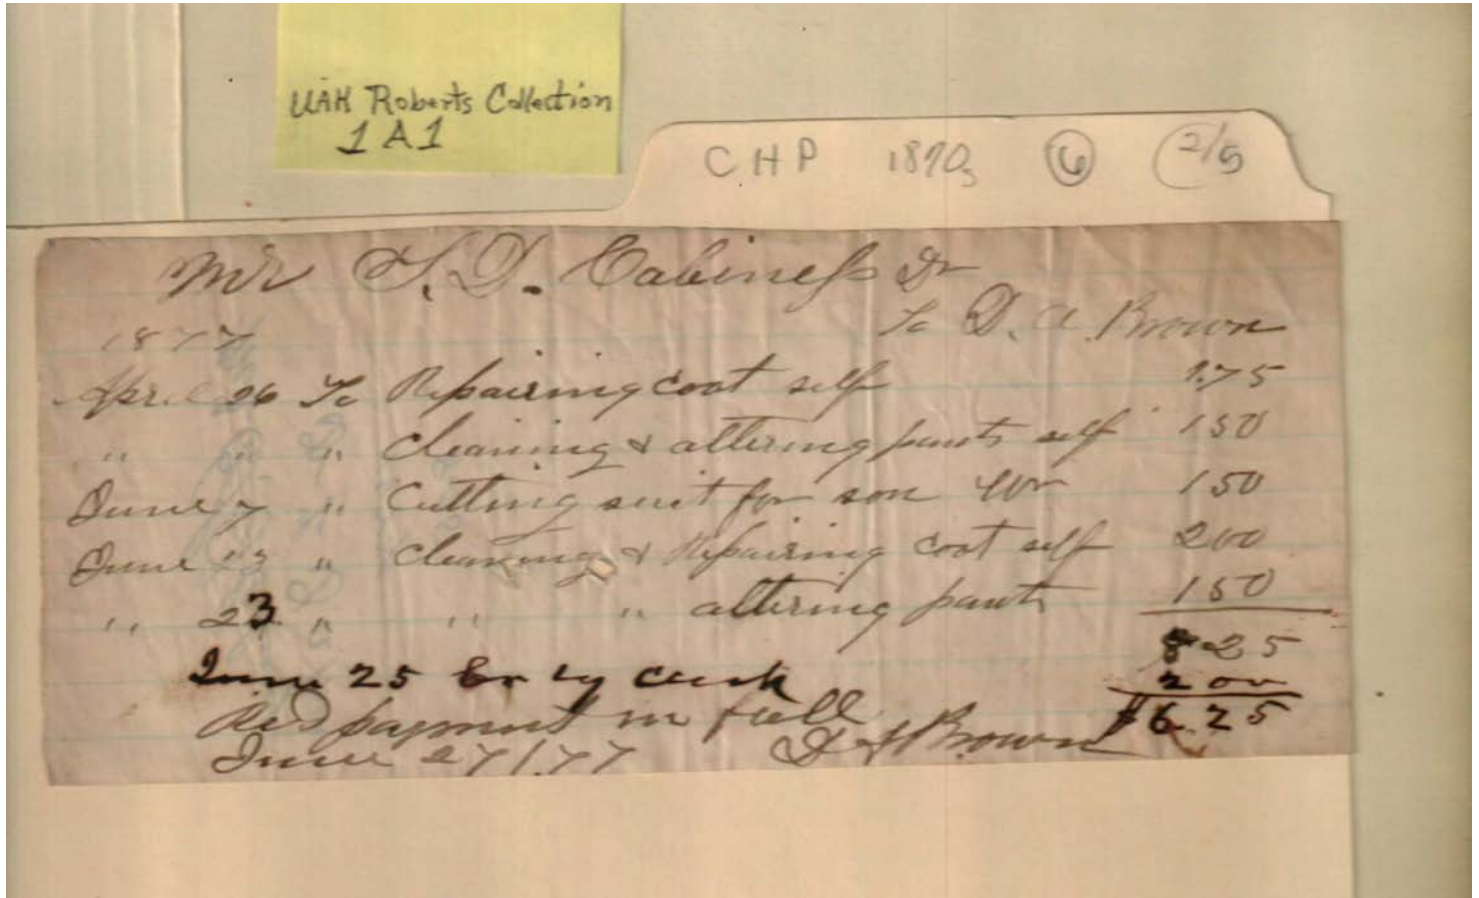 UAH Roberts Collection
1A1
CHP 1870s 6 2/5
Mr S. D. Cabiness Dr
To D. A. Brown
1877
April 26 To Repairing coat self 1.75
" " " Cleaning & altering pants self 150
June 7 " Cutting suit for son 150
June 13 " Cleaning & Repairing coat self 200
" 23 " " " altering pants 150
825
June 25 Cr by cash 200
Recd payment in full $6.25
June 27/77 D A Brown